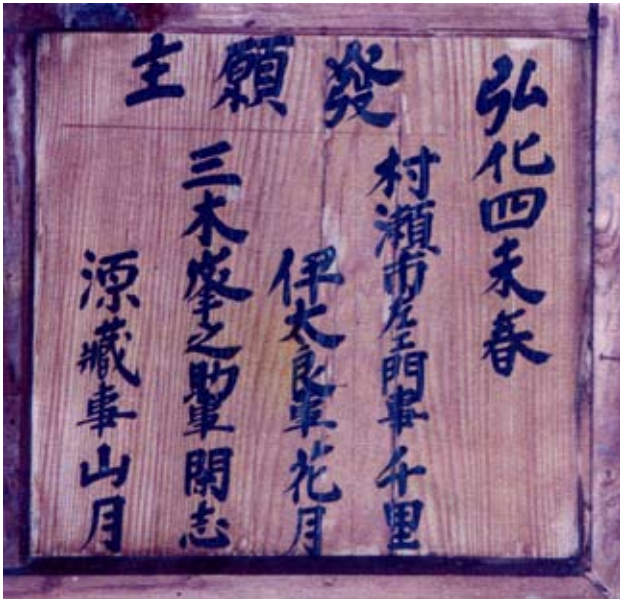 弘化四未春
發願主
村瀬市左エ門事千里
伊太良事花月
三木峯之助事開志
源藏事山月